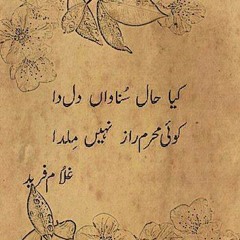 کیا حال سُناواں دل دا
کوئی محرم راز نہیں مِلدا
غلام فرید